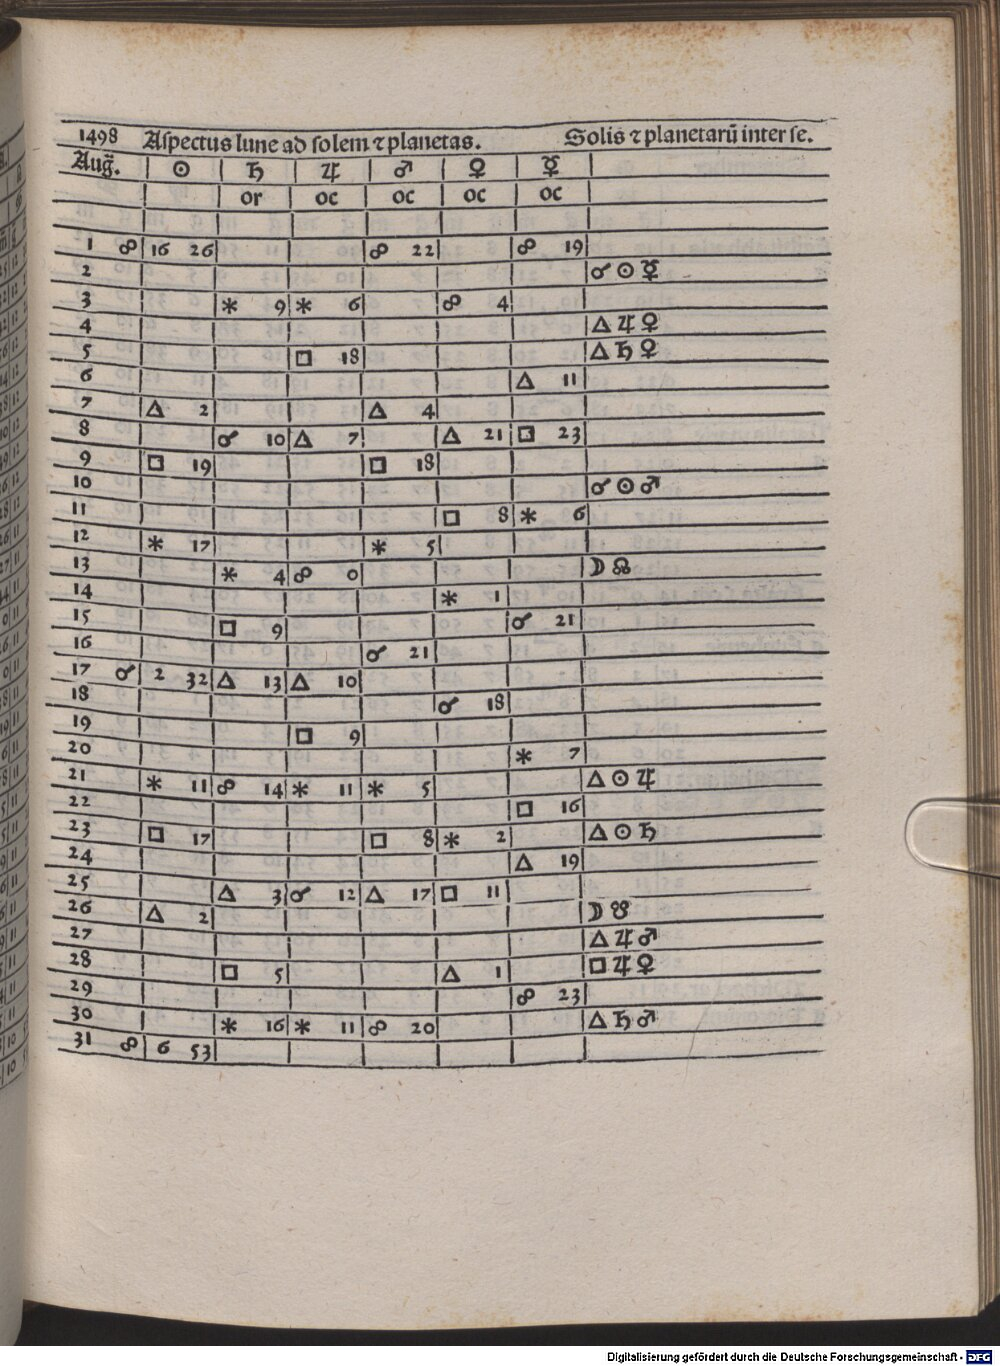 1498 Aspectus lune ad solem ⁊ planetas. Solis ⁊ planetarū inter se.
Aug̃. ☉ ♄ ♃ ♂ ♀ ☿
or oc oc oc oc
1 ☍ 16 26 ☍ 22 ☍ 19
2 ☌ ☉ ☿
3 ⚹ 9 ⚹ 6 ☍ 4
4 △ ♃ ♀
5 □ 18 △ ♄ ♀
6 △ 11
7 △ 2 △ 4
8 ☌ 10 △ 7 △ 21 □ 23
9 □ 19 □ 18
10 ☌ ☉ ♂
11 □ 8 ⚹ 6
12 ⚹ 17 ⚹ 5
13 ⚹ 4 ☍ 0 ☽ ☊
14 ⚹ 1
15 □ 9 ☌ 21
16 ☌ 21
17 ☌ 2 32 △ 13 △ 10
18 ☌ 18
19 □ 9
20 ⚹ 7
21 ⚹ 11 ☍ 14 ⚹ 11 ⚹ 5 △ ☉ ♃
22 □ 16
23 □ 17 □ 8 ⚹ 2 △ ☉ ♄
24 △ 19
25 △ 3 ☌ 12 △ 17 □ 11
26 △ 2 ☽ ☋
27 △ ♃ ♂
28 □ 5 △ 1 □ ♃ ♀
29 ☍ 23
30 ⚹ 16 ⚹ 11 ☍ 20 △ ♄ ♂
31 ☍ 6 53
Digitalisierung gefördert durch die Deutsche Forschungsgemeinschaft - DFG